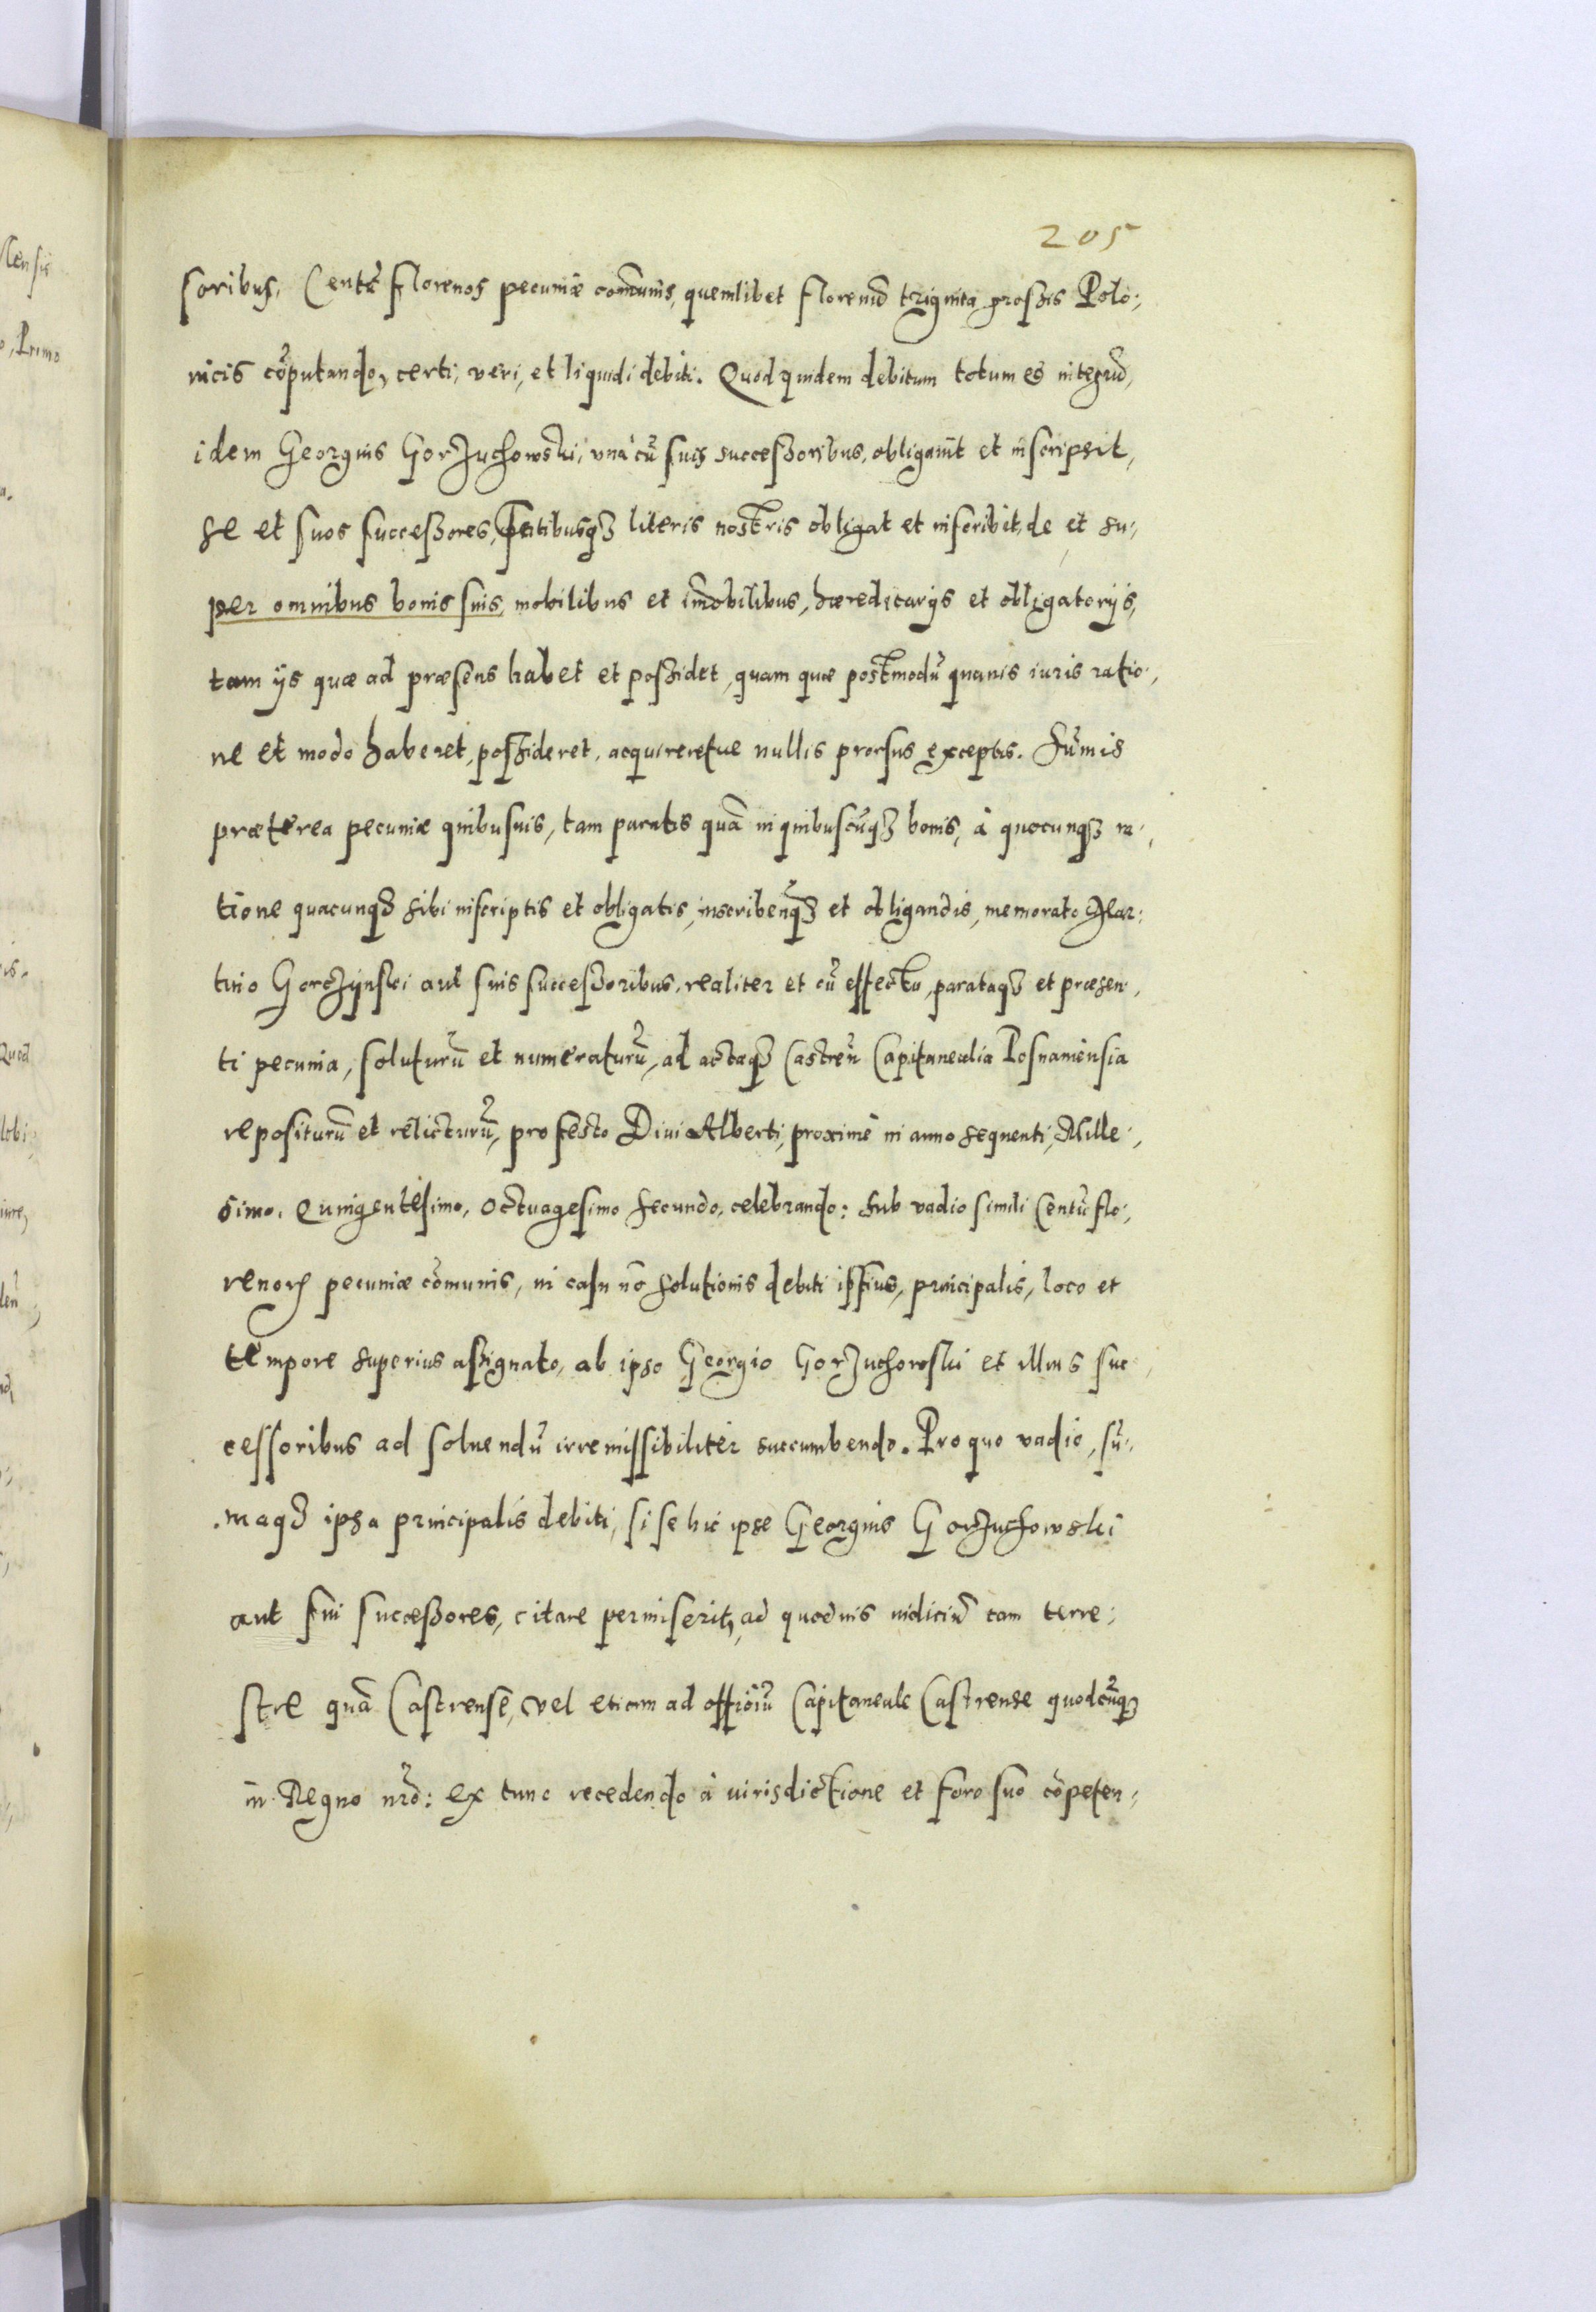 205
soribus, Centũ florenos pecuniæ com̃unis, quemlibet florenũ triginta grossis Polo:
nicis cõputando, certi, veri, et liquidi debiti. Quod quidem debitum totum et integrũ,
idem Georgius Gorzuchowski, vnà cũ suis successoribus, obligauit et inscripsit,
se et suos successores, pñtibusq3 literis nostris obligat et inscribit, de et su:
per omnibus bonis suis, mobilibus et im̃obilibus, hæreditarijs et obligatorijs,
tam ijs quæ ad præsens habet et possidet, quam quæ postmodũ quauis iuris ratio:
ne et modo haberet, possideret, acquireretue nullis prorsus exceptis. Sum̃is
præterea pecuniæ quibusuis, tam paratis quã in quibuscũq3 bonis, à quocunq3 ra:
tione quacunq3 sibi inscriptis et obligatis, inscribenq3 et obligandis, memorato Mar:
tino Gorczynski aut suis successoribus, realiter et cũ effectu, parataq3 et præsen:
ti pecunia, soluturũ et numeraturũ, ad actaq3 Castreñ Capitanealia Posnaniensia
repositurũ et relicturũ, pro festo Diui Alberti, proximè in anno sequenti, Mille:
simo, Quingentesimo, Octuagesimo Secundo, celebrando: sub vadio simili Centũ flo:
renorꝫ pecuniæ cõmunis, in casu nõ solutionis debiti istius, principalis, loco et
tempore superius assignato, ab ipso Georgio Gorzuchowski et illius suc:
cessoribus ad soluendũ irremissibiliter succumbendo. Pro quo vadio, sũ:
maq3 ipsa principalis debiti, si se hic ipse Georgius Gorzuchowski
aut sui successores, citare permiserit, ad quoduis iudiciũ tam terre:
stre quã Castrense, vel etiam ad officiũ Capitaneale Castrense quodcũq3
in Regno nr̃o: ex tunc recedendo à iurisdictione et foro suo cõpeten: